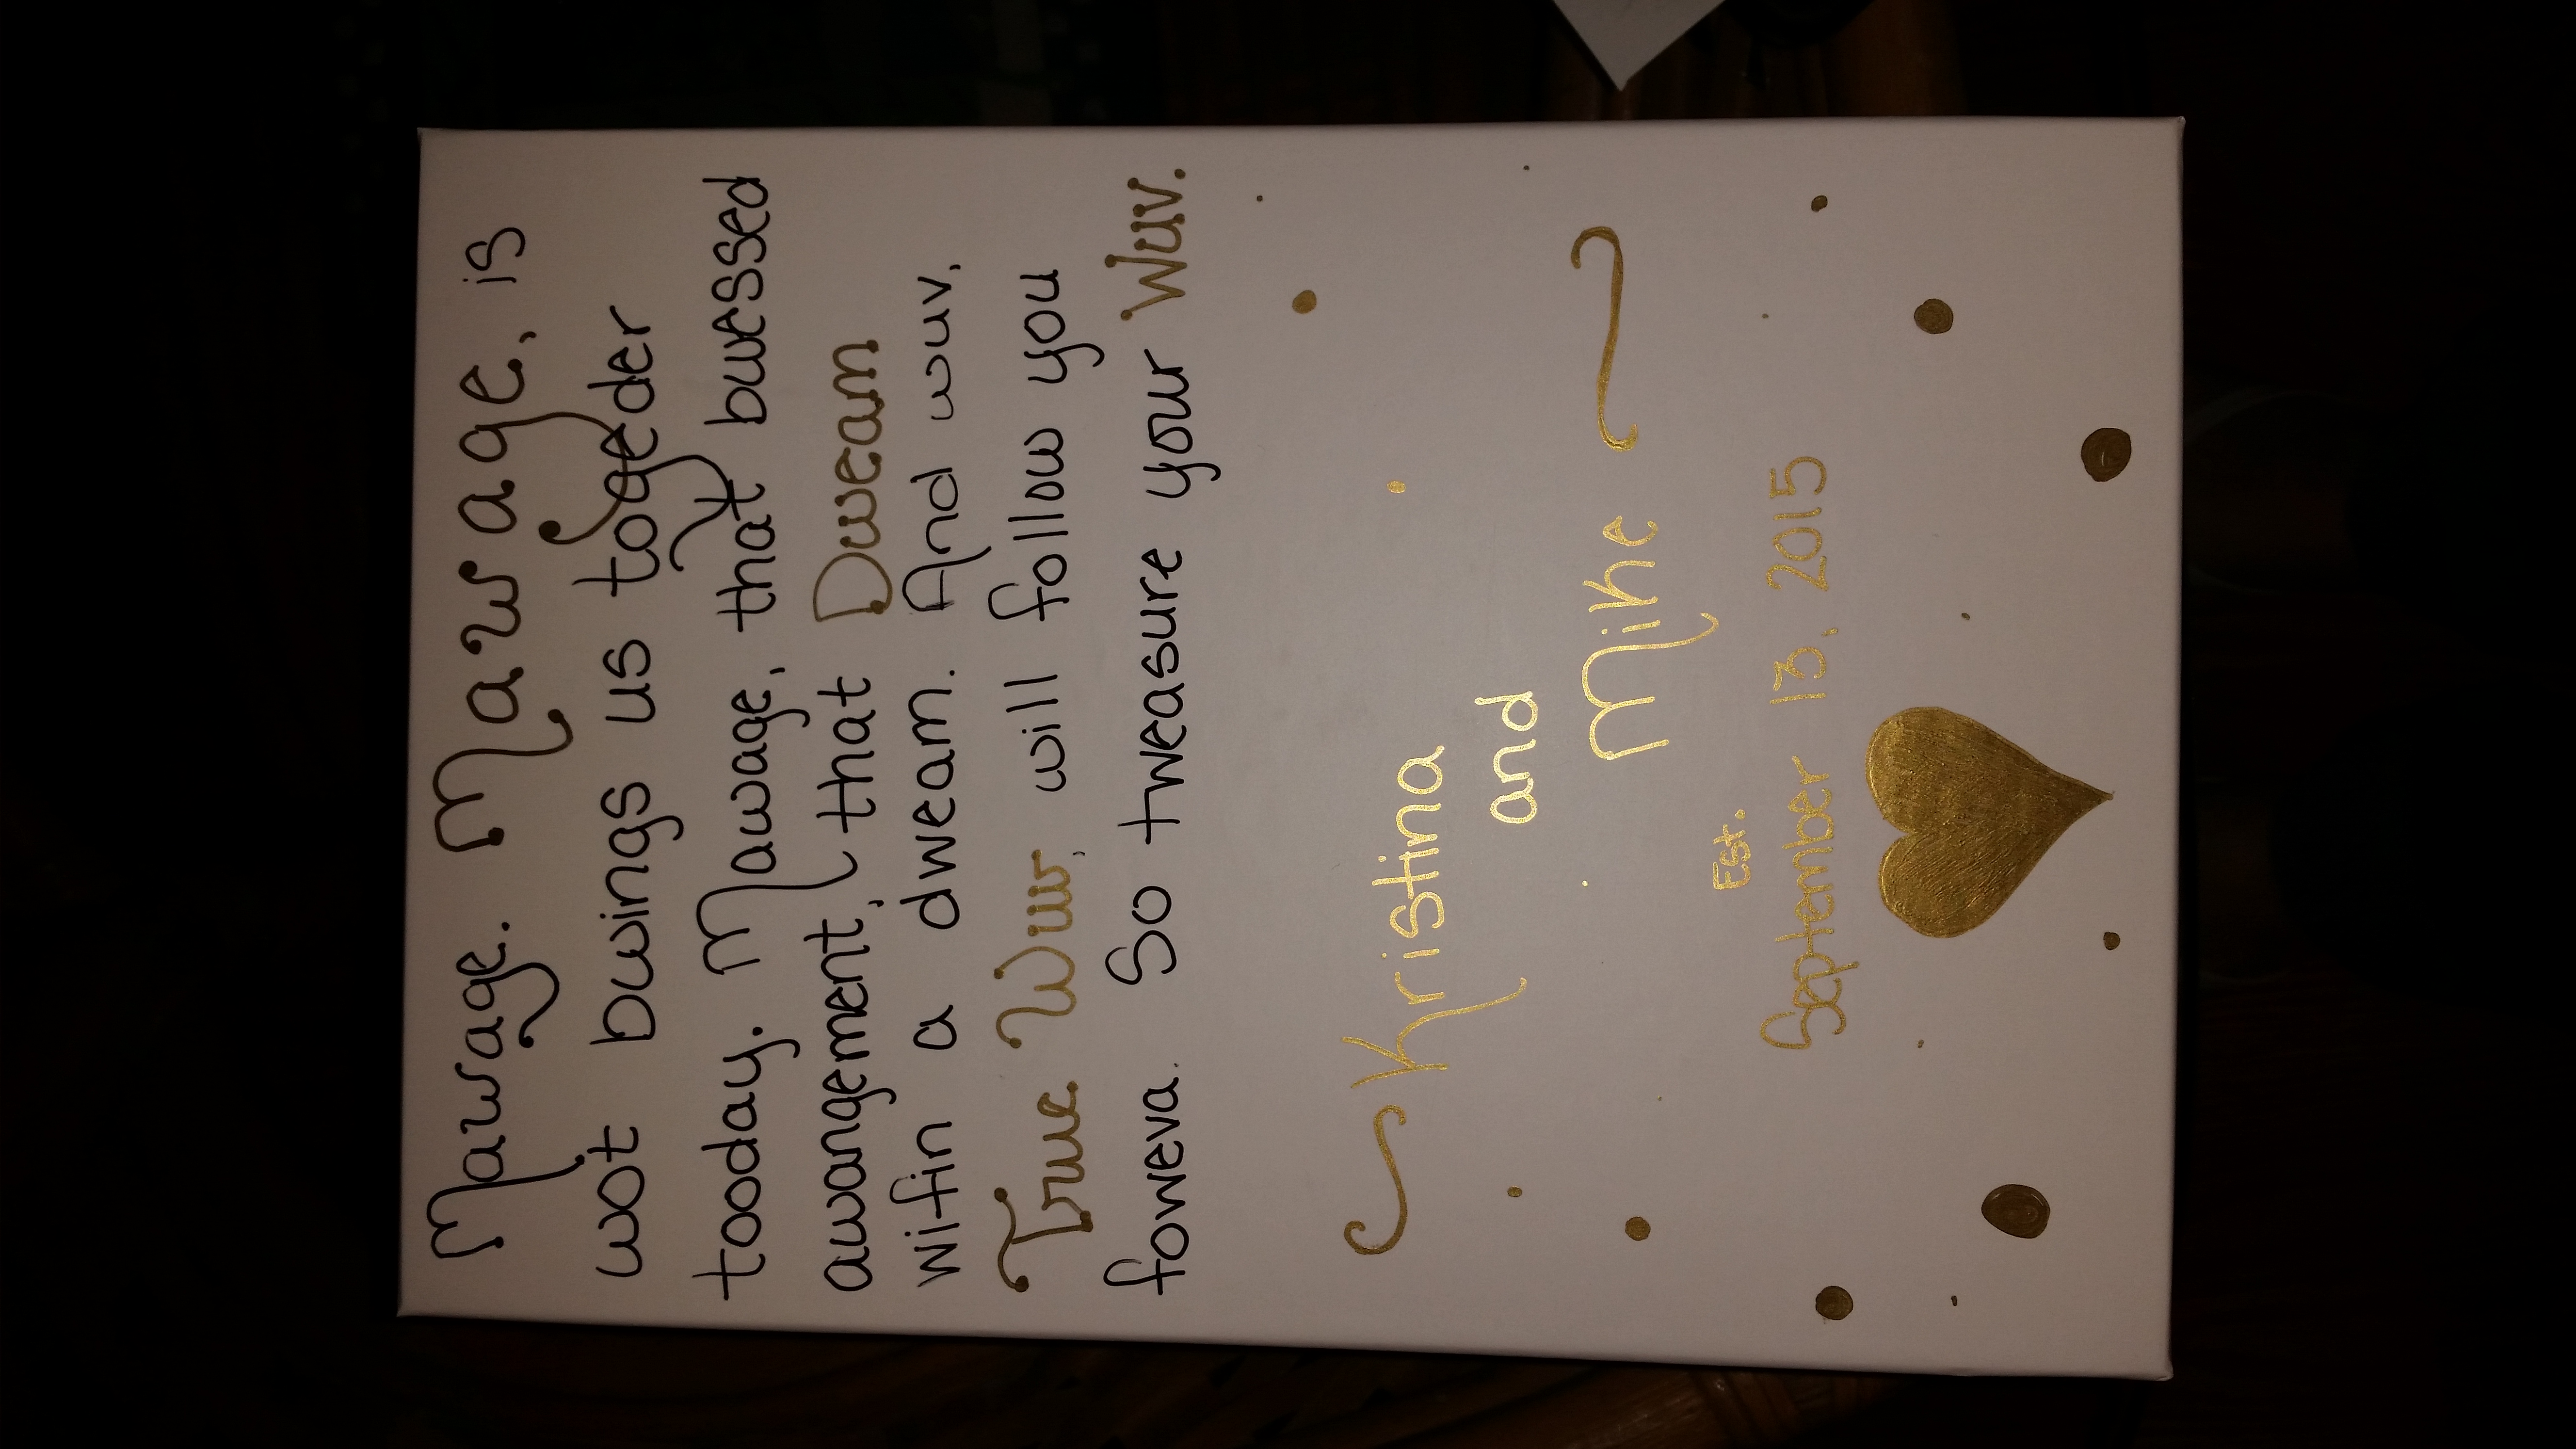 Mawage. Mawage, is
wot bwings us togeder
tooday. Mawage, that bwessed
awwangement, that Dweam
wifin a dweam. And wuv,
True Wuv, will follow you
foweva. So tweasure your Wuv.
Kristina
and
Mike
Est.
September 13, 2015